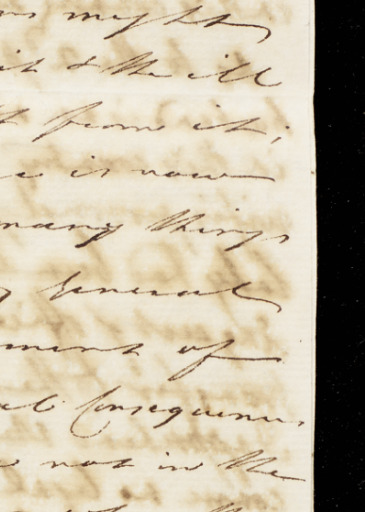 might
it & the ill
from it;
is now
many things
General
ment of
Consequences
not in the